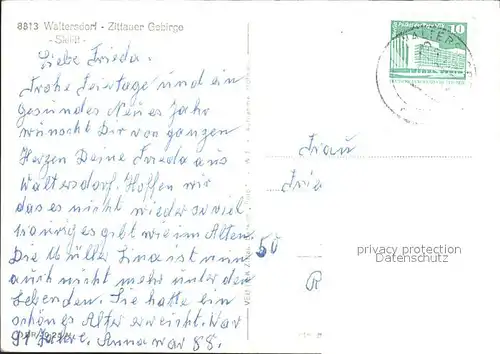 8813 Waltersdorf - Zittauer Gebirge
Liebe Frieda.
Frohe Feiertage und ein
gesundes Neues Jahr
wünscht Dir von ganzen
Herzen Deine Frieda aus
Waltersdorf. Hoffen wir
das es nicht wieder so viel
trauriges gibt wie im Alten.
Die Müller Lina ist nun
auch nicht mehr unter den
Lebenden. Sie hatte ein
schönes Alter erreicht. War
91 Jahre. Anna war 88.
10
WALTERSD
Frau
Frie
50
R
privacy protection
Datenschutz